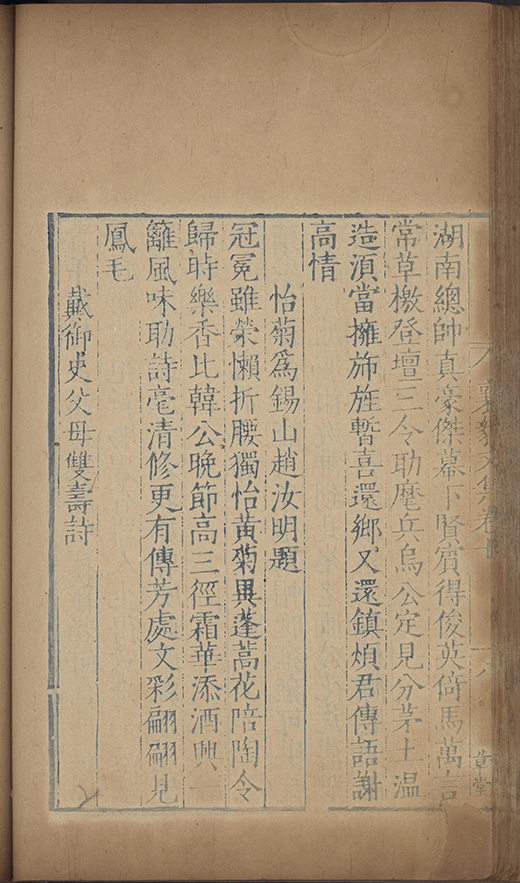 湖南總帥真豪傑幕下賢賓得俊英倚馬萬言
常草檄登壇三令助麾兵烏公定見分茅土温
造湏當擁旆旌暫喜還鄉又還鎮煩君傳語謝
高情
怡菊爲錫山趙汝明題
冠冕雖榮懶折腰獨怡黄菊異蓬蒿花陪陶令
歸時樂香比韓公晚節高三徑霜華添酒興一
籬風味助詩毫清修更有傳芳處文彩翩翩見
鳳毛
戴御史父母雙壽詩